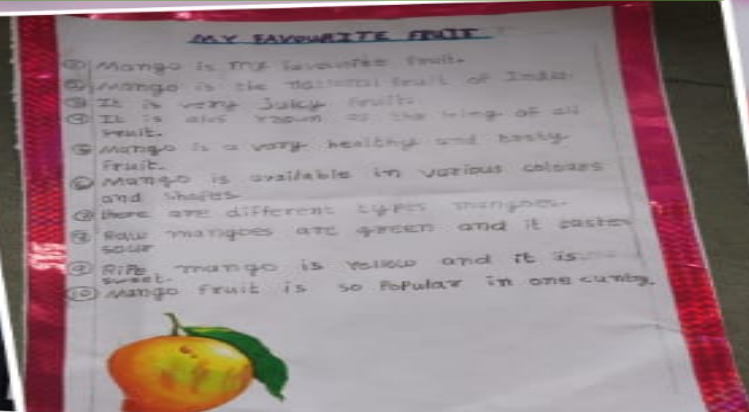 MY FAVOURITE FRUIT
① Mango is my favourite fruit.
② Mango is the national fruit of India.
③ It is very Juicy fruit.
④ It is also known as the king of all
fruit.
⑤ Mango is a very healthy and tasty
fruit.
⑥ Mango is available in various colours
and shapes
⑦ there are different types mangoes.
⑧ Raw mangoes are green and it tastes
sour
⑨ Ripe mango is Yellow and it is
sweet.
⑩ Mango fruit is so Popular in one